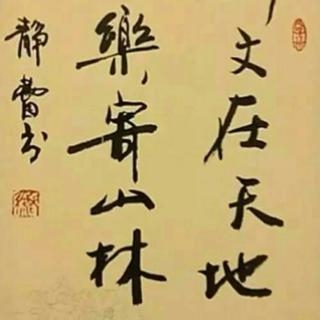 文在天地
樂寄山林
静